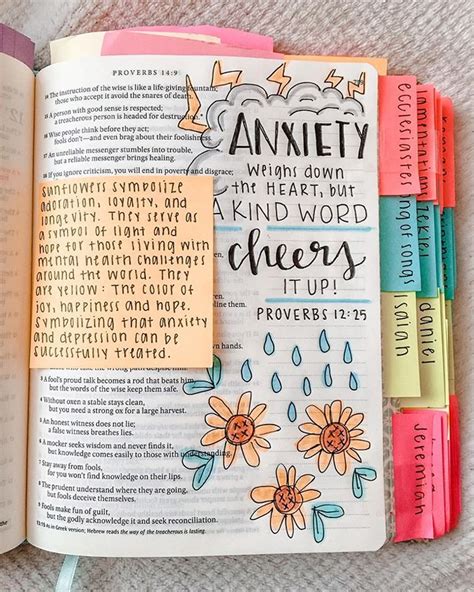 PROVERBS 14:9
14 The instruction of the wise is like a life-giving fountain;
those who accept it avoid the snares of death.
15 A person with good sense is respected;
a treacherous person is headed for destruction.*
16 Wise people think before they act;
fools don't—and even brag about their foolishness.
17 An unreliable messenger stumbles into trouble,
but a reliable messenger brings healing.
18 If you ignore criticism, you will end in poverty and disgrace;
SUNFLOWERS SYMBOLIZE
ADORATION, LOYALTY, AND
LONGEVITY. THEY SERVE AS
A SYMBOL OF LIGHT AND
HOPE FOR THOSE LIVING WITH
MENTAL HEALTH CHALLENGES
AROUND THE WORLD. THEY
ARE YELLOW: THE COLOR OF
JOY, HAPPINESS AND HOPE.
SYMBOLIZING THAT ANXIETY
AND DEPRESSION CAN BE
SUCCESSFULLY TREATED.
own hands.
3 A fool's proud talk becomes a rod that beats him,
but the words of the wise keep them safe.
4 Without oxen a stable stays clean,
but you need a strong ox for a large harvest.
5 An honest witness does not lie;
a false witness breathes lies.
6 A mocker seeks wisdom and never finds it,
but knowledge comes easily to those with understanding.
7 Stay away from fools,
for you won't find knowledge on their lips.
8 The prudent understand where they are going,
but fools deceive themselves.
9 Fools make fun of guilt,
but the godly acknowledge it and seek reconciliation.
13:15 As in Greek version; Hebrew reads the way of the treacherous is lasting.
ANXIETY
WEIGHS DOWN
THE HEART, BUT
A KIND WORD
cheers
IT UP!
PROVERBS 12:25
ecclesiastes
song of songs
isaiah
Jeremiah
lamentations
ezekiel
daniel